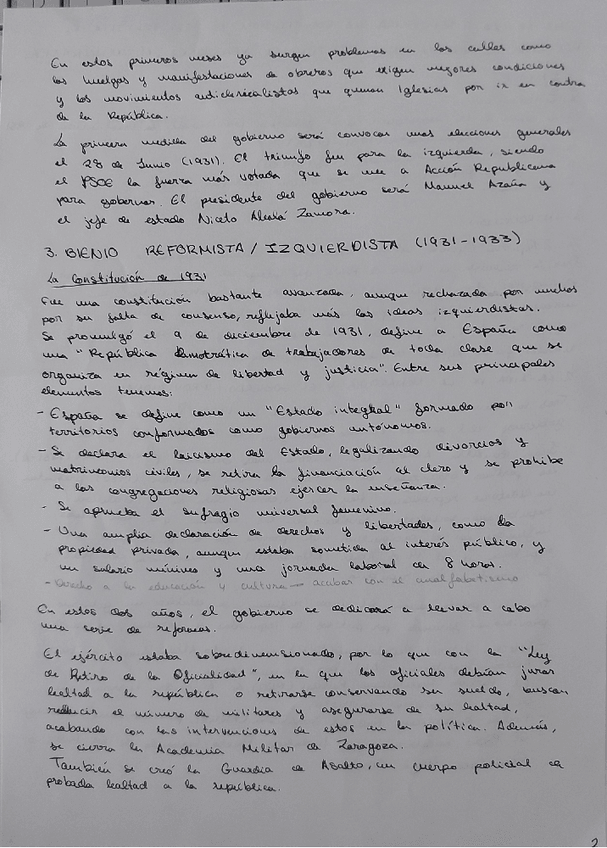 En estos primeros meses ya surgen problemas en las calles como
las huelgas y manifestaciones de obreros que exigen mejores condiciones
y los movimientos anticlericalistas que queman Iglesias por ir en contra
de la República.
La primera medida del gobierno será convocar unas elecciones generales
el 28 de Junio (1931). El triunfo fue para la izquierda, siendo
el PSOE la fuerza más votada que se une a Acción Republicana
para gobernar. El presidente del gobierno será Manuel Azaña y
el jefe de estado Niceto Alcalá Zamora.
3. BIENIO REFORMISTA / IZQUIERDISTA (1931-1933)
La Constitución de 1931
Fue una constitución bastante avanzada, aunque rechazada por muchos
por su falta de consenso, reflejaba más las ideas izquierdistas.
Se promulgó el 9 de diciembre de 1931, define a España como
una "República democrática de trabajadores de toda clase que se
organiza en régimen de libertad y justicia". Entre sus principales
elementos tenemos:
- España se define como un "Estado integral" formado por
territorios conformados como gobiernos autónomos.
- Se declara el laicismo del Estado, legalizando divorcios y
matrimonios civiles, se retira la financiación al clero y se prohibe
a las congregaciones religiosas ejercer la enseñanza.
- Se aprueba el sufragio universal femenino.
- Una amplia declaración de derechos y libertades, como la
propiedad privada, aunque estaba sometida al interés público, y
un salario mínimo y una jornada laboral de 8 horas.
- Derecho a la educación y cultura → acabar con el analfabetismo
En estos dos años, el gobierno se dedicará a llevar a cabo
una serie de reformas.
El ejército estaba sobredimensionado, por lo que con la "Ley
de Retiro de la Oficialidad", en la que los oficiales debían jurar
lealtad a la república o retirarse conservando su sueldo, buscan
reducir el número de militares y asegurarse de su lealtad,
acabando con las intervenciones de estos en la política. Además,
se cierra la Academia Militar de Zaragoza.
También se creó la Guardia de Asalto, un cuerpo policial de
probada lealtad a la república.
2